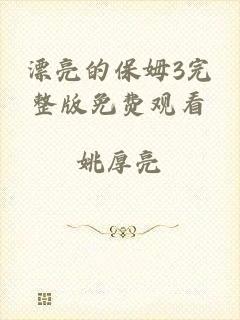 漂亮的保姆3完
整版免费观看
姚厚亮